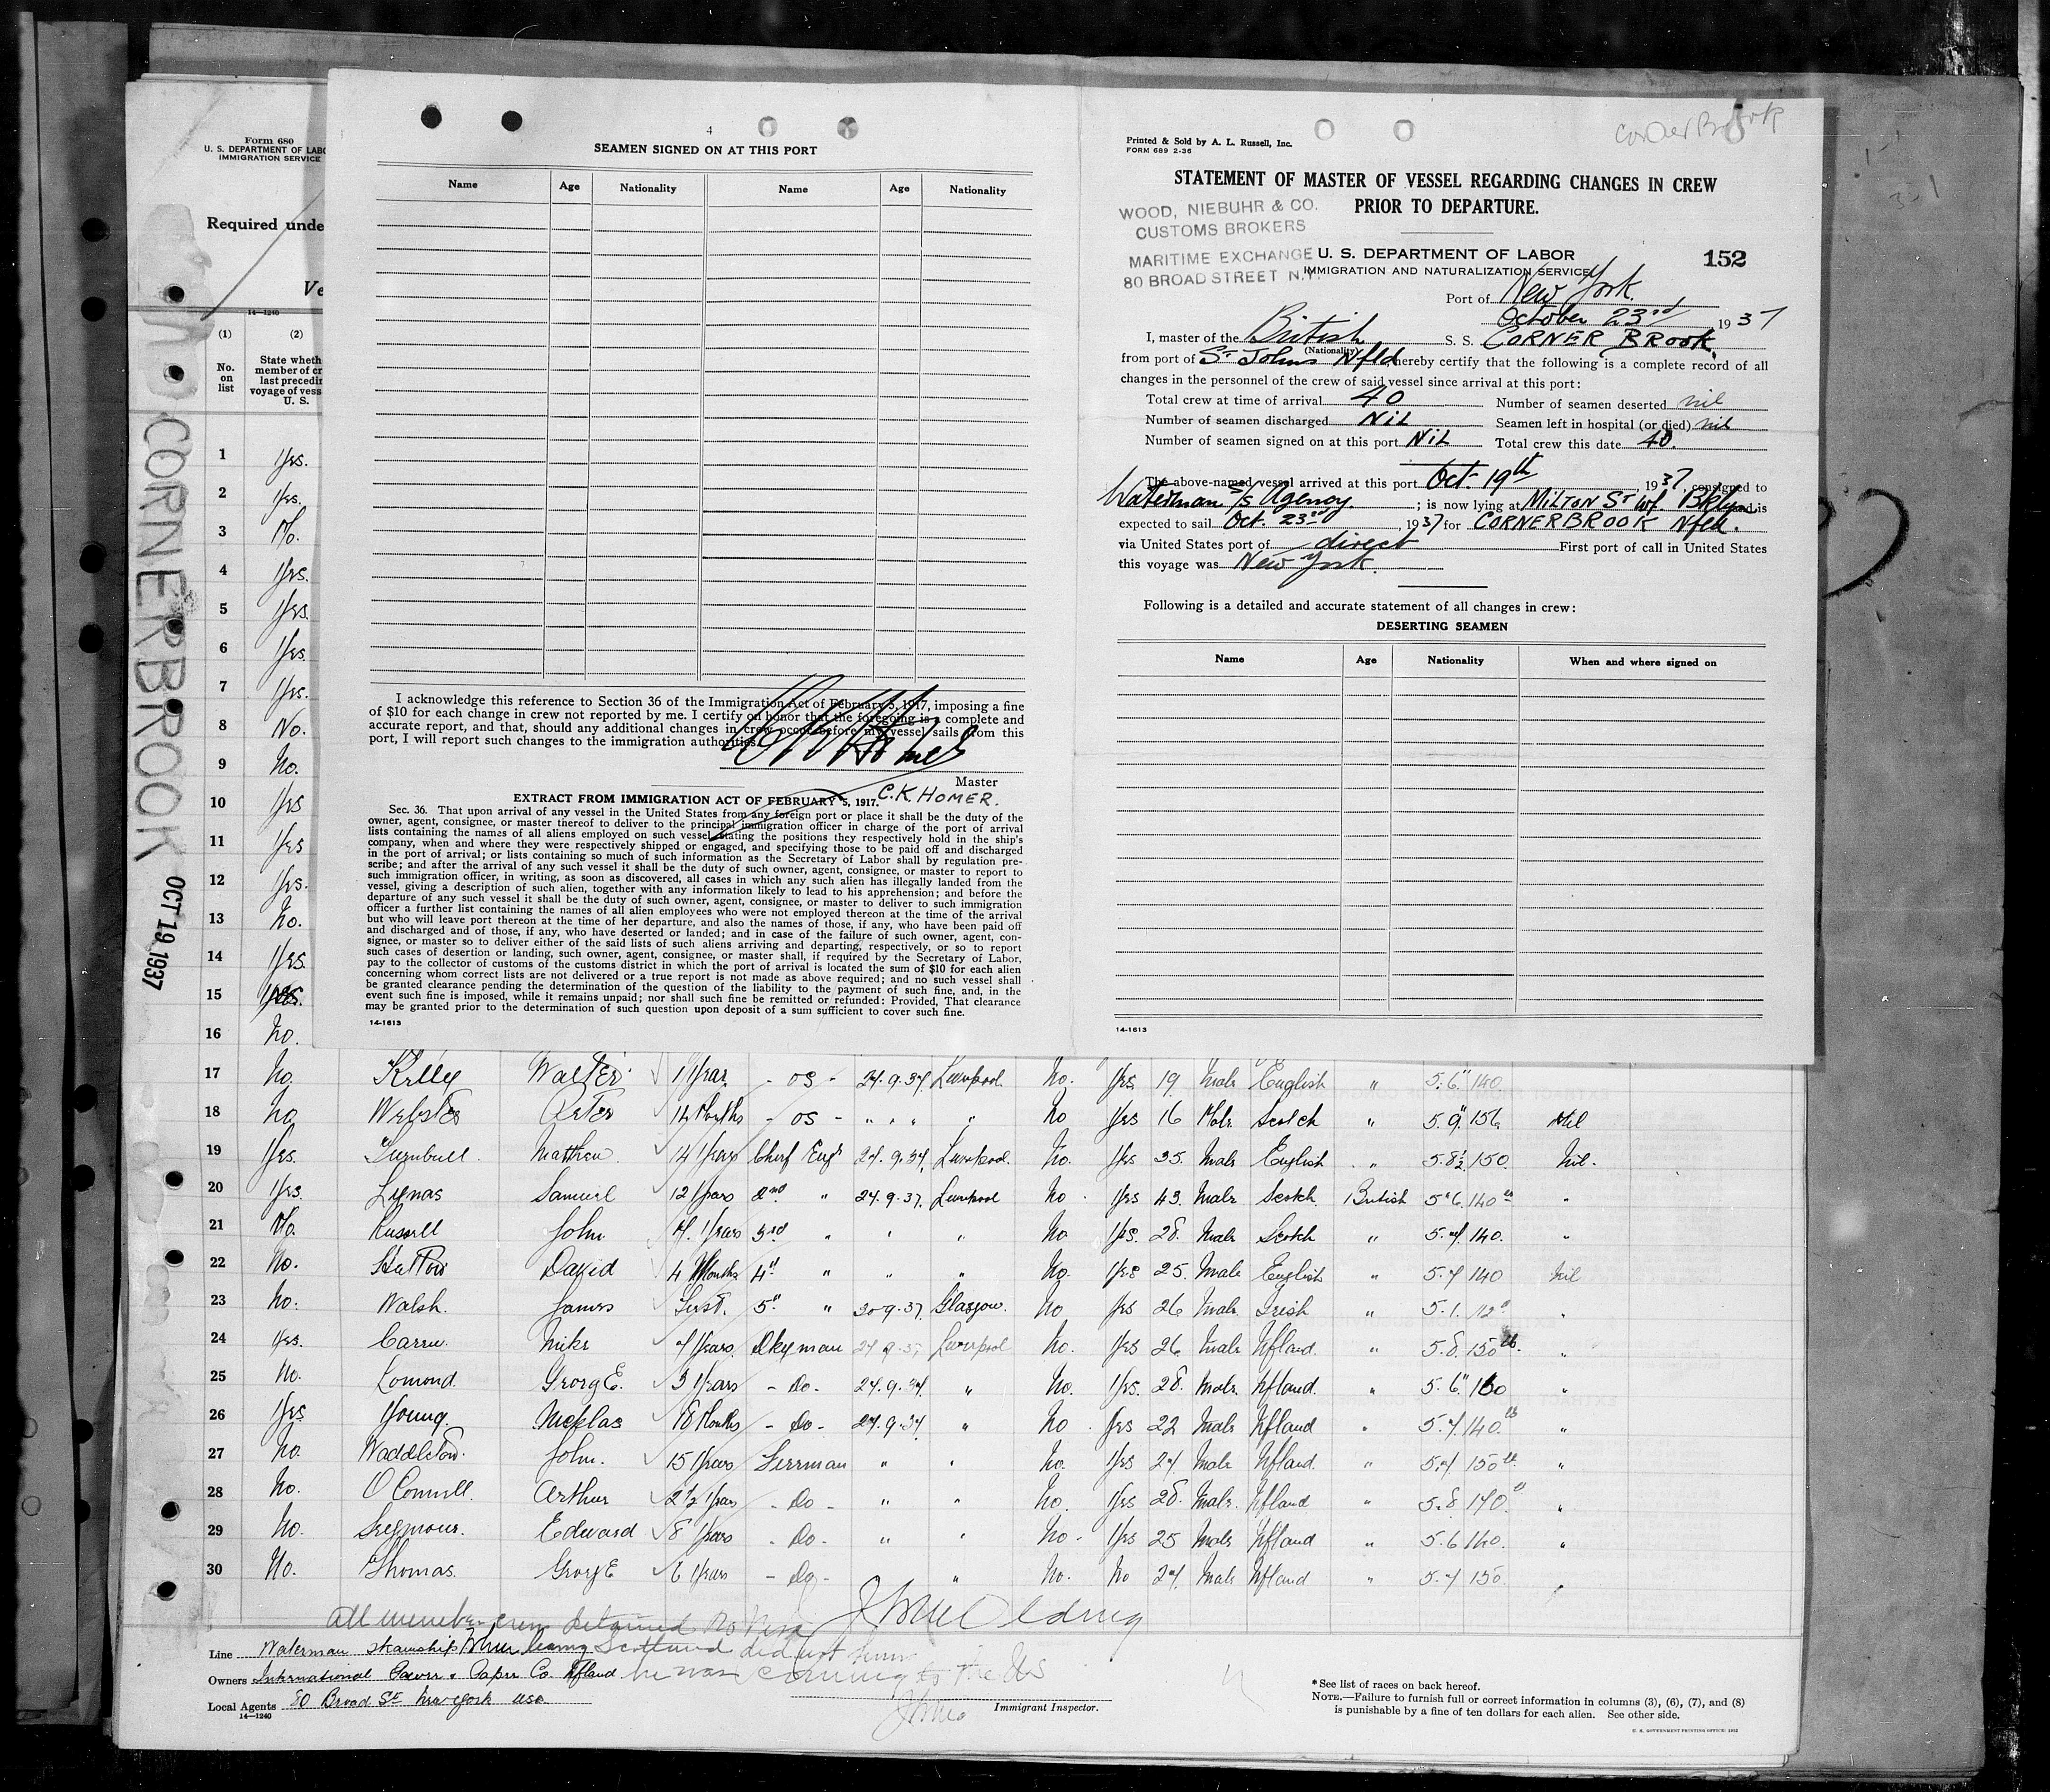 Form 680
U. S. DEPARTMENT OF LABO
IMMIGRATION SERVICE
Required unde
Ve
14—1240
(1) (2)
No. on list
State wheth
member of cr
last precedin
voyage of vess
U. S.
CORNERBROOK OCT 19 1937
1 Yes.
2 Yes.
3 No.
4 Yes.
5 Yes.
6 Yes.
7 Yes.
8 No.
9 No.
10 Yes
11 Yes
12 Yes.
13 No.
14 Yes.
15
16 No.
4
SEAMEN SIGNED ON AT THIS PORT
Name Age Nationality Name Age Nationality
I acknowledge this reference to Section 36 of the Immigration Act of February 5, 1917, imposing a fine
of $10 for each change in crew not reported by me. I certify on honor that the foregoing is a complete and
accurate report, and that, should any additional changes in crew occur before my vessel sails from this
port, I will report such changes to the immigration authorities.
Master
C.K. HOMER.
EXTRACT FROM IMMIGRATION ACT OF FEBRUARY 5, 1917.
Sec. 36. That upon arrival of any vessel in the United States from any foreign port or place it shall be the duty of the
owner, agent, consignee, or master thereof to deliver to the principal immigration officer in charge of the port of arrival
lists containing the names of all aliens employed on such vessel, stating the positions they respectively hold in the ship's
company, when and where they were respectively shipped or engaged, and specifying those to be paid off and discharged
in the port of arrival; or lists containing so much of such information as the Secretary of Labor shall by regulation pre-
scribe; and after the arrival of any such vessel it shall be the duty of such owner, agent, consignee, or master to report to
such immigration officer, in writing, as soon as discovered, all cases in which any such alien has illegally landed from the
vessel, giving a description of such alien, together with any information likely to lead to his apprehension; and before the
departure of any such vessel it shall be the duty of such owner, agent, consignee, or master to deliver to such immigration
officer a further list containing the names of all alien employees who were not employed thereon at the time of the arrival
but who will leave port thereon at the time of her departure, and also the names of those, if any, who have been paid off
and discharged and of those, if any, who have deserted or landed; and in case of the failure of such owner, agent, con-
signee, or master so to deliver either of the said lists of such aliens arriving and departing, respectively, or so to report
such cases of desertion or landing, such owner, agent, consignee, or master shall, if required by the Secretary of Labor,
pay to the collector of customs of the customs district in which the port of arrival is located the sum of $10 for each alien
concerning whom correct lists are not delivered or a true report is not made as above required; and no such vessel shall
be granted clearance pending the determination of the question of the liability to the payment of such fine, and, in the
event such fine is imposed, while it remains unpaid; nor shall such fine be remitted or refunded: Provided, That clearance
may be granted prior to the determination of such question upon deposit of a sum sufficient to cover such fine.
14-1613
Corner Brook
Printed & Sold by A. L. Russell, Inc.
FORM 689 2-36
STATEMENT OF MASTER OF VESSEL REGARDING CHANGES IN CREW
PRIOR TO DEPARTURE.
WOOD, NIEBUHR & CO.
CUSTOMS BROKERS
MARITIME EXCHANGE
80 BROAD STREET N.Y.
U. S. DEPARTMENT OF LABOR
IMMIGRATION AND NATURALIZATION SERVICE
152
Port of New York.
October 23rd 1937
I, master of the British S. S. CORNER BROOK.
(Nationality)
from port of St Johns Nfld, hereby certify that the following is a complete record of all
changes in the personnel of the crew of said vessel since arrival at this port:
Total crew at time of arrival 40 Number of seamen deserted nil
Number of seamen discharged NiL Seamen left in hospital (or died) nil
Number of seamen signed on at this port NiL Total crew this date 40.
The above-named vessel arrived at this port Oct. 19th, 1937, consigned to
Waterman S/S Agency.; is now lying at MILTON ST Wf. Bklyn and is
expected to sail Oct. 23rd, 1937 for CORNERBROOK Nfld.
via United States port of direct First port of call in United States
this voyage was New York.
Following is a detailed and accurate statement of all changes in crew:
DESERTING SEAMEN
Name Age Nationality When and where signed on
14-1613
17 No. Kelly Walter 1 Year - OS - 24.9.37. Liverpool. No. Yes 19 Male English " 5.6" 140.
18 No Webster Peter 14 Months - OS - " " " " No Yes 16 Male Scotch " 5.9" 156 Nil
19 Yes. Turnbull. Matthew. 14 Years Chief Engr 24.9.37. Liverpool. No. Yes 35. Male English " 5.8½ 150. Nil.
20 Yes. Lynas Samuel 12 Years 2nd " 24.9.37. Liverpool No. Yes 43. Male Scotch British 5"6. 140 "
21 No. Russell John 7. Years 3rd " " " No Yes. 28. Male Scotch " 5.7. 140. "
22 No. Hutton David 4 Months 4" " " " No. Yes 25. Male English " 5.7 140 Nil
23 No. Walsh. James First. 5" " 20.9.37. Glasgow. No Yes 26 Male Irish " 5.1. "
24 Yes. Carew. Mike 7 Years. Dkyman 24.9.37 Liverpool No. Yes 26 Male Nfland. " 5.8. 150 lb. "
25 No. Lomond. George E. 3 Years - Do - 24.9.37. " No. Yes. 28. Male. Nfland. " 5.6" 150 "
26 Yes Young. Nicklas 18 Months - Do - 24.9.37 " No. Yes 22 Male Nfland " 5.7. 140. "
27 No. Waddleton. John. 15 Years Firrman " " No. Yes 27. Male Nfland. " 5.7 150 "
28 No. O Connell. Arthur 2½ Years - Do - " " No. Yes 28. Male. Nfland " 5.8. 170. "
29 No. Seymour. Edward 8 Years - Do - " " No. Yes 25 Male Nfland " 5.6 140. "
30 No. Thomas. George E 6 Years - Do - " No. No 27. Male Nfland " 5.7 150. "
All member crew detained No Visa
when leaving Scotland did not know
he was coming to the US
Line Waterman Steamship
Owners International Power & Paper Co. Nfland
Local Agents 80 Broad St New York USA
14—1240
Immigrant Inspector.
* See list of races on back hereof.
NOTE.—Failure to furnish full or correct information in columns (3), (6), (7), and (8)
is punishable by a fine of ten dollars for each alien. See other side.
U. S. GOVERNMENT PRINTING OFFICE: 1932